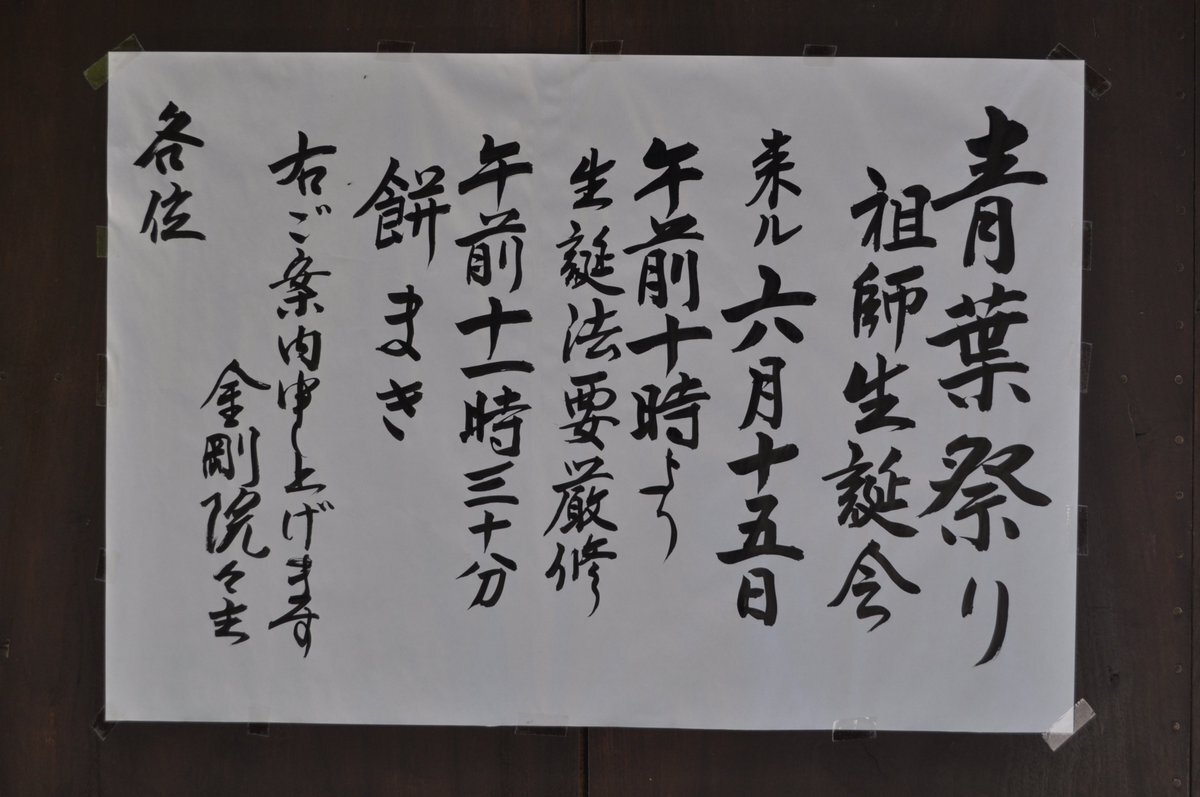 青葉祭り
祖師生誕会
来ル六月十五日
午前十時より
生誕法要厳修
午前十一時三十分
餅まき
右ご案内申し上げます
金剛院々主
各位